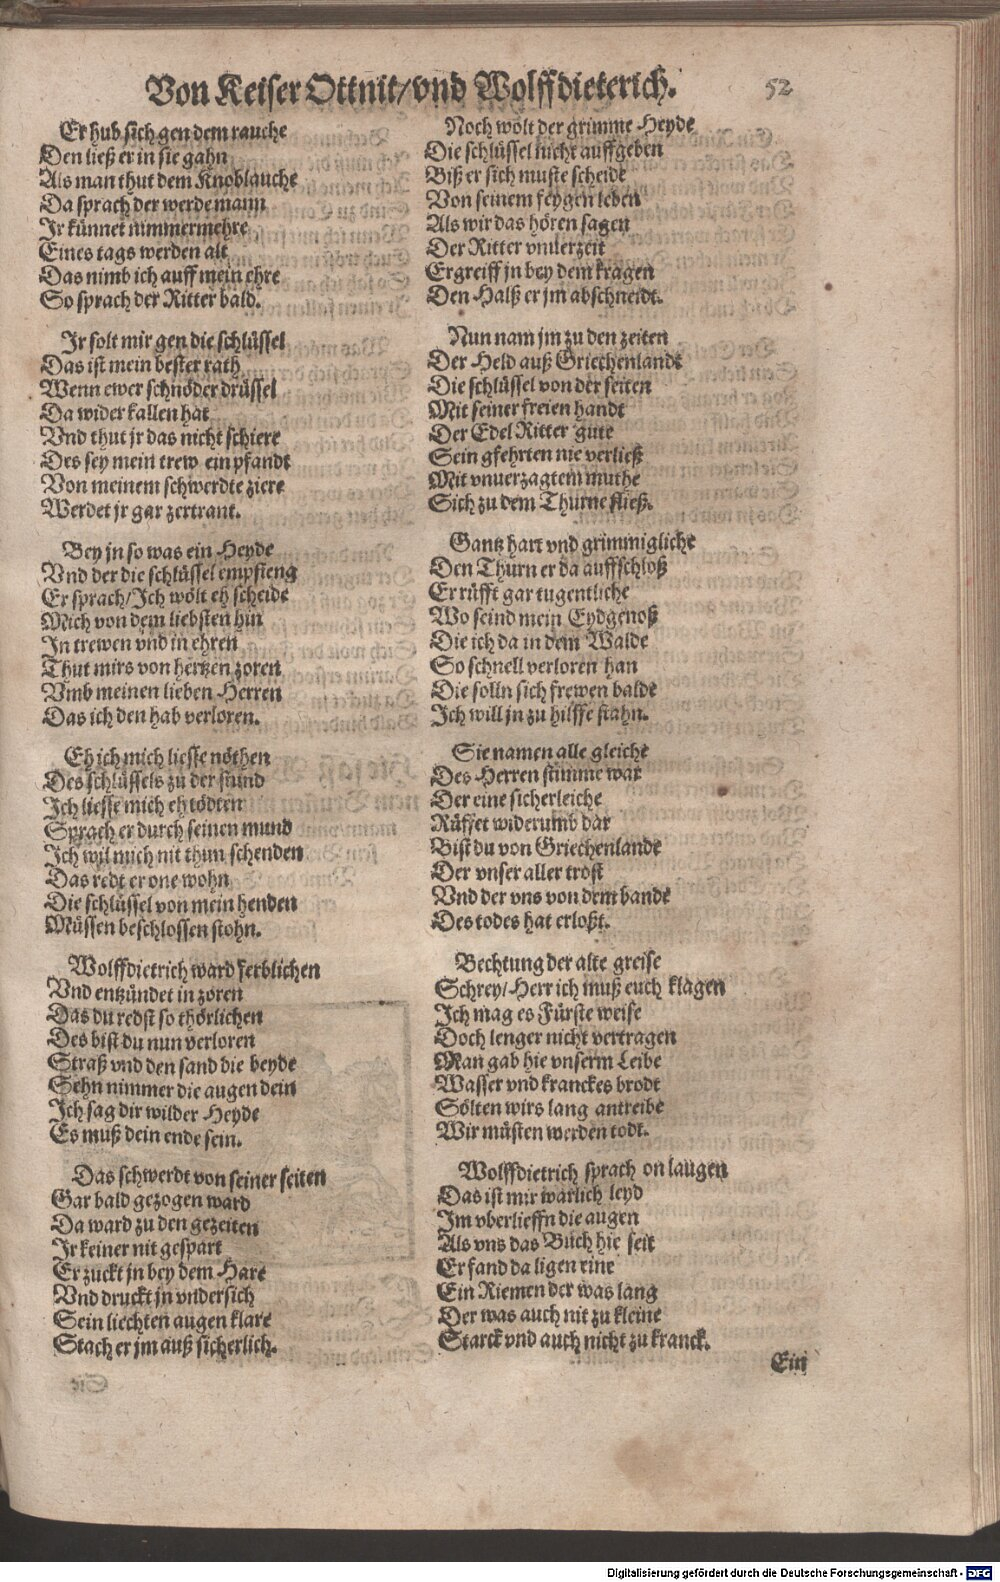 Von Keiser Ottnit/vnd Wolffdieterich.
52
Er hub sich gen dem rauche
Den ließ er in sie gahn
Als man thut dem Knoblauche
Da sprach der werde mann
Jr künnet nimmermehre
Eines tags werden alt
Das nimb ich auff mein ehre
So sprach der Ritter bald.
Jr solt mir gen die schlüssel
Das ist mein bester rath
Wenn ewer schnöder drüssel
Da wider kallen hat
Vnd thut jr das nicht schiere
Des sey mein trew ein pfandt
Von meinem schwerdte ziere
Werdet jr gar zertrant.
Bey jn so was ein Heyde
Vnd der die schlüssel empfieng
Er sprach/Ich wölt eh scheide
Mich von dem liebsten hin
In trewen vnd in ehren
Thut mirs von hertzen zoren
Vmb meinen lieben Herren
Das ich den hab verloren.
Eh ich mich liesse nöthen
Des schlüssels zu der stund
Ich liesse mich eh tödten
Sprach er durch seinen mund
Ich wil mich nit thun schenden
Das redt er one wohn
Die schlüssel von mein henden
Müssen beschlossen stohn.
Wolffdietrich ward ferblichen
Vnd entzündet in zoren
Das du redst so thörlichen
Des bist du nun verloren
Straß vnd den sand die beyde
Sehn nimmer die augen dein
Ich sag dir wilder Heyde
Es muß dein ende sein.
Das schwerdt von seiner seiten
Gar bald gezogen ward
Da ward zu den gezeiten
Jr keiner nit gespart
Er zuckt jn bey dem Hare
Vnd druckt jn vndersich
Sein liechten augen klare
Stach er jm auß sicherlich.
Noch wolt der grimme Heyde
Die schlüssel nicht auffgeben
Biß er sich muste scheide
Von seinem feygen leben
Als wir das hören sagen
Der Ritter vnuerzeit
Ergreiff jn bey dem kragen
Den Halß er jm abschneidt.
Nun nam jm zu den zeiten
Der Held auß Griechenlandt
Die schlüssel von der seiten
Mit seiner freien handt
Der Edel Ritter gute
Sein gfehrten nie verließ
Mit vnuerzagtem muthe
Sich zu dem Thurne fließ.
Gantz hart vnd grimmigliche
Den Thurn er da auffschloß
Er rüfft gar tugentliche
Wo seind mein Eydgenoß
Die ich da in dem Walde
So schnell verloren han
Die solln sich frewen balde
Ich will jn zu hilffe stahn.
Sie namen alle gleiche
Des Herren stimme war
Der eine sicherleiche
Rüffet widerumb dar
Bist du von Griechenlande
Der vnser aller tröst
Vnd der vns von dem bande
Des todes hat erloßt.
Bechtung der alte greise
Schrey/Herr ich muß euch klagen
Ich mag es Fürste weise
Doch lenger nicht vertragen
Man gab hie vnserm Leibe
Wasser vnd kranckes brodt
Sölten wirs lang antreibe
Wir müsten werden todt.
Wolffdietrich sprach on laugen
Das ist mir warlich leyd
Im vberlieffn die augen
Als vns das Buch hie seit
Er fand da ligen eine
Ein Riemen der was lang
Der was auch nit zu kleine
Starck vnd auch nicht zu kranck.
Ein
Digitalisierung gefördert durch die Deutsche Forschungsgemeinschaft - DFG